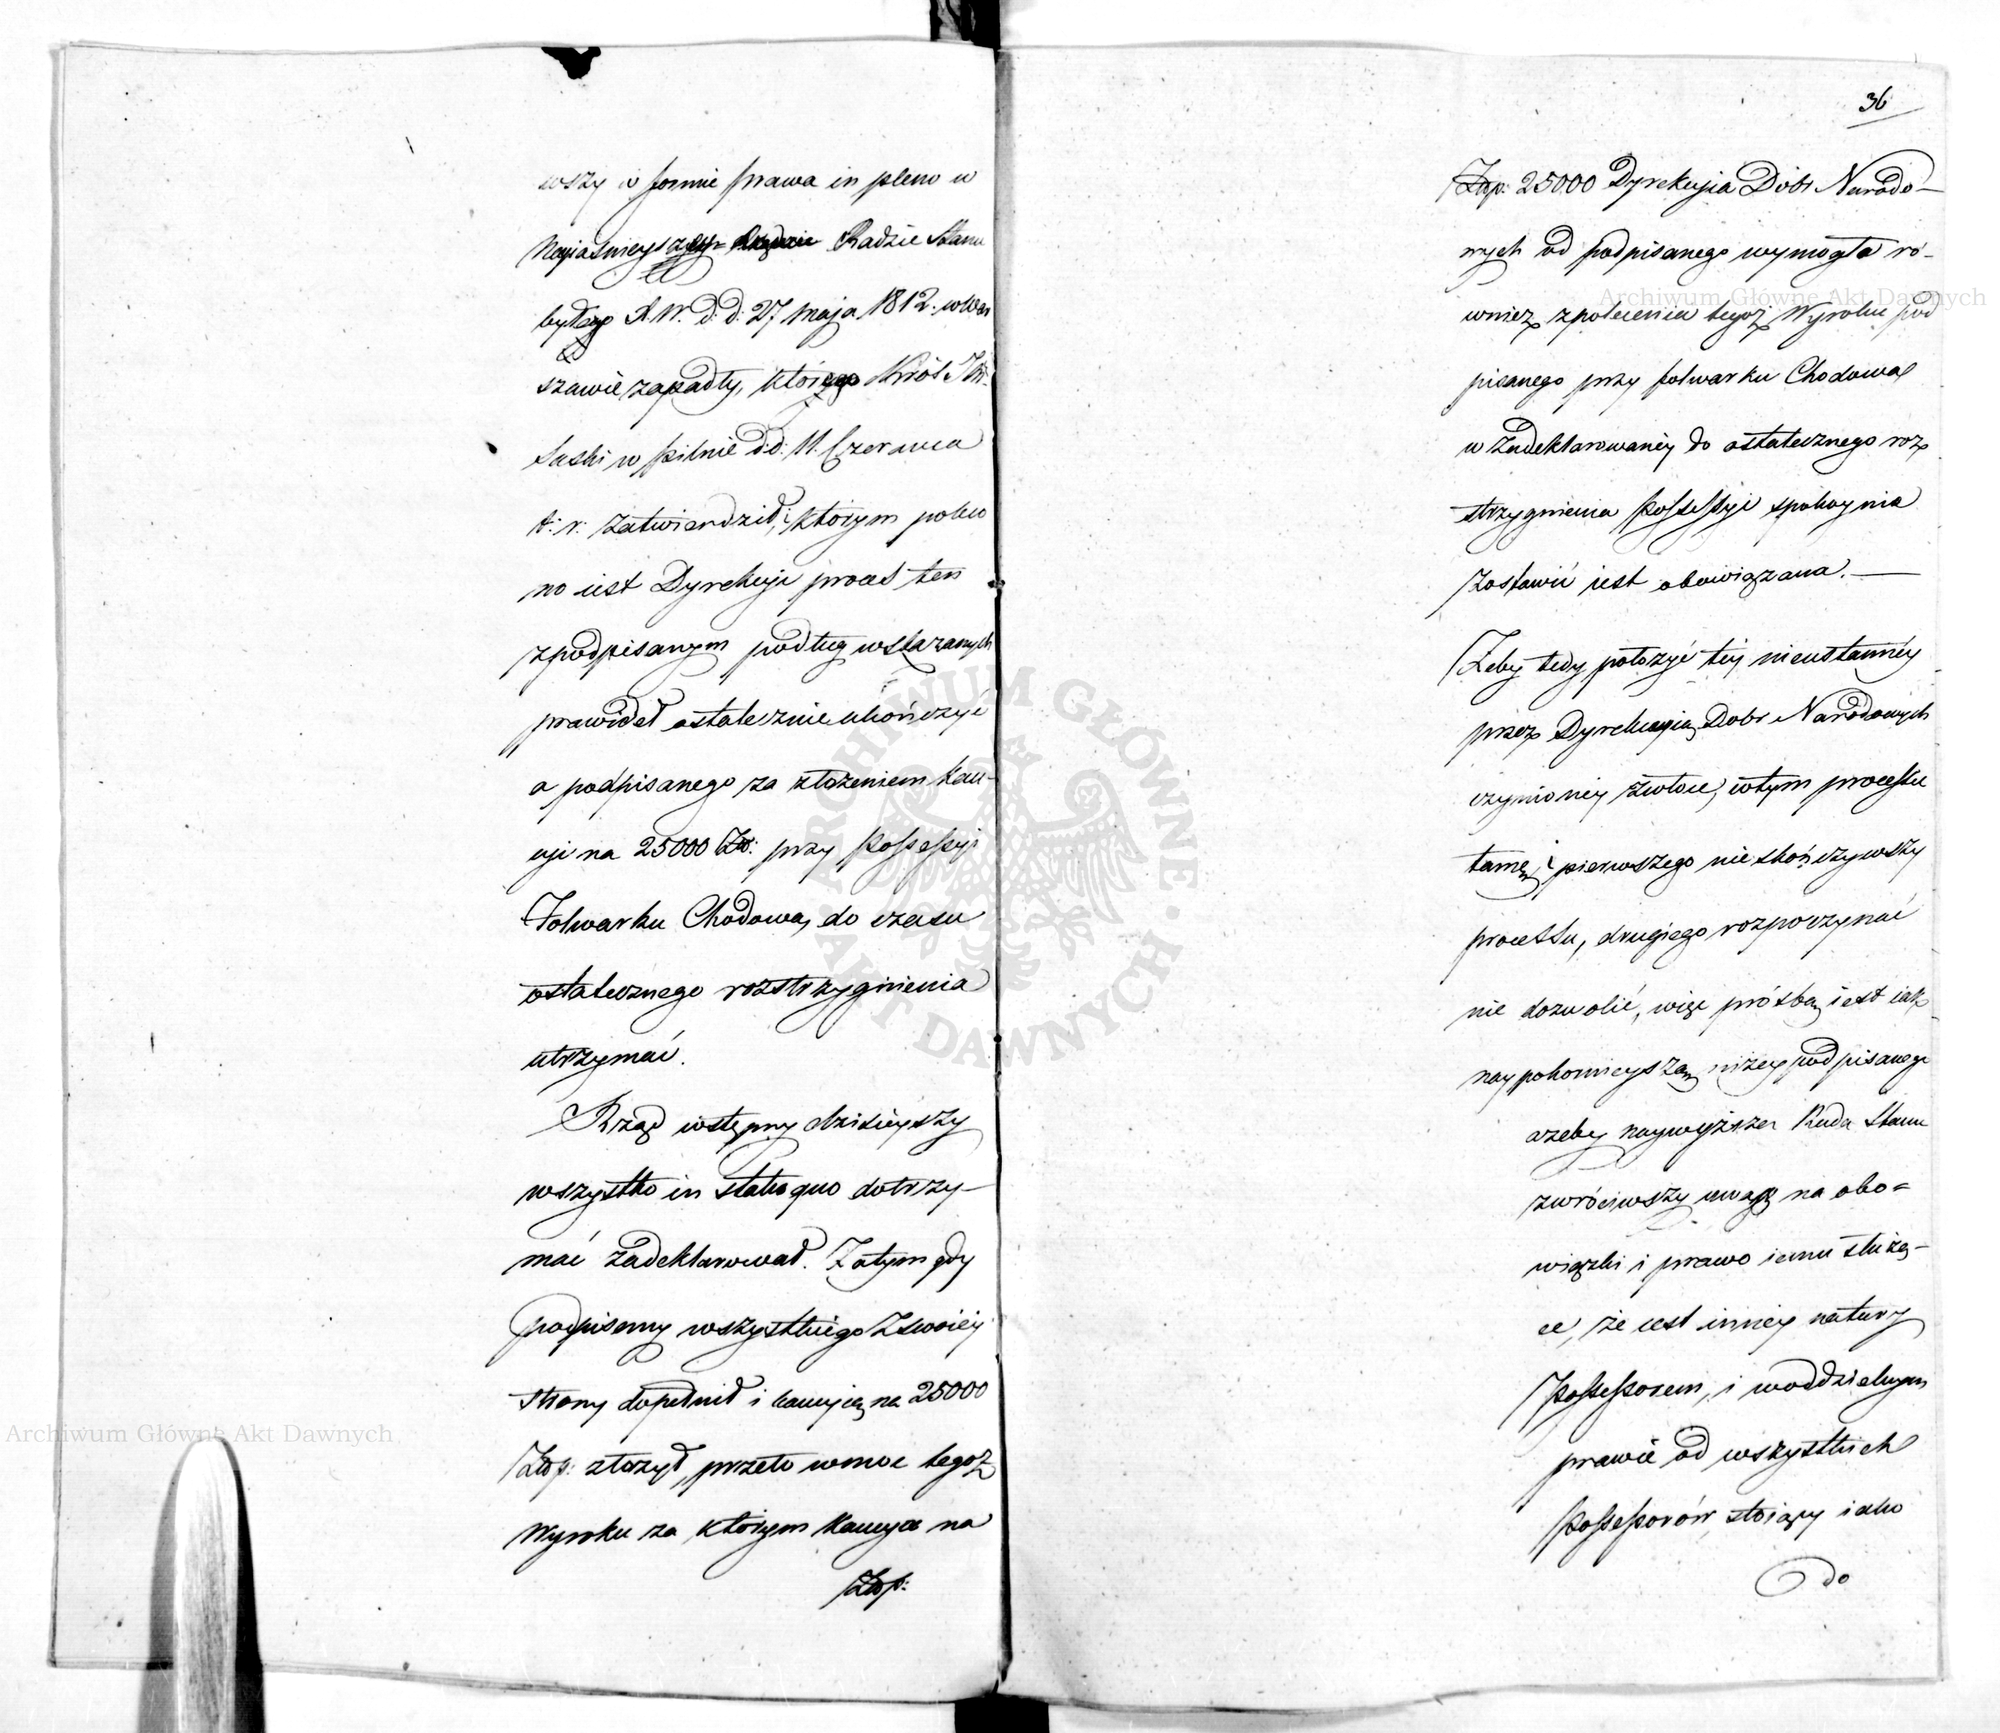 wszy w formie prawa in pleno w
Nayiaśnieyszey Radzie Stanu
byłego X. W. d: d: 27 maja 1812. w War
szawie zapadły, którego Król JMć.
Saski w Pilnie d: d: 11. Czerwca
t: r: zatwierdził, którym poleco
no iest Dyrekcyi proces ten
z podpisanym podług wskazanych
prawideł ostatecznie ukończyć
a podpisanego za złożeniem kau-
cyi na 25000 Zł: przy Possessyi
Folwarku Chodowa, do czasu
ostatecznego rozstrzygnienia
utrzymać.
Rząd wstępny dzisieyszy
wszystko in statu quo dotrzy-
mać zadeklarował. Zatym gdy
podpisany wszystkiego z swoiéy
strony dopełnił i kaucyią na 25000
Złp: złożył, przeto w moc tegoż
Wyroku za którym kaucya na
Złp:
36
Złp: 25000 Dyrekcyia Dóbr Narodo-
wych od podpisanego wymogła ró-
wnież z polecenia tegoż Wyroku pod
pisanego przy folwarku Chodowa
w zadeklarowanéy do ostatecznego roz
strzygnienia Possessyi spokoynie
zostawić iest obowiązana. —
Żeby tedy położyć téy nieustannéy
przez Dyrekcyią Dobr Narodowych
czynionéy zwłoce, w tym processie
tamę, i pierwszego nieskończywszy
processu, drugiego rozpoczynać
nie dozwolić, więc prośbą iest iak
naypokornieyszą niżey podpisanego
ażeby naywyższa Rada Stanu
zwróciwszy uwagę na obo=
wiązki i prawo iemu służą-
ce, że iest innéy natury
Possessorem, i w oddzielnym
prawie od wszystkich
Possessorów, stoiący iako
do
Archiwum Główne Akt Dawnych
Archiwum Główne Akt Dawnych
ARCHIWUM GŁÓWNE · AKT DAWNYCH ·